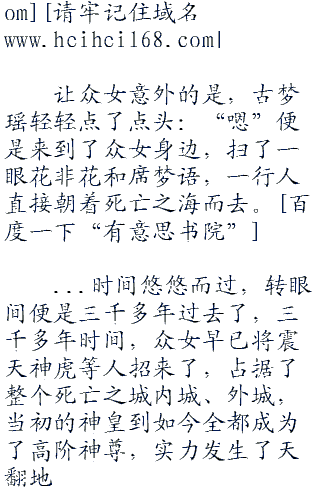 om][请牢记住域名
www.hcihci168.com|
让众女意外的是，古梦
瑶轻轻点了点头：“嗯”便
是来到了众女身边，扫了一
眼花非花和席梦语，一行人
直接朝着死亡之海而去。[百
度一下“有意思书院”]
...时间悠悠而过，转眼
间便是三千多年过去了，三
千多年时间，众女早已将震
天神虎等人招来了，占据了
整个死亡之城内城、外城，
当初的神皇到如今全都成为
了高阶神尊，实力发生了天
翻地